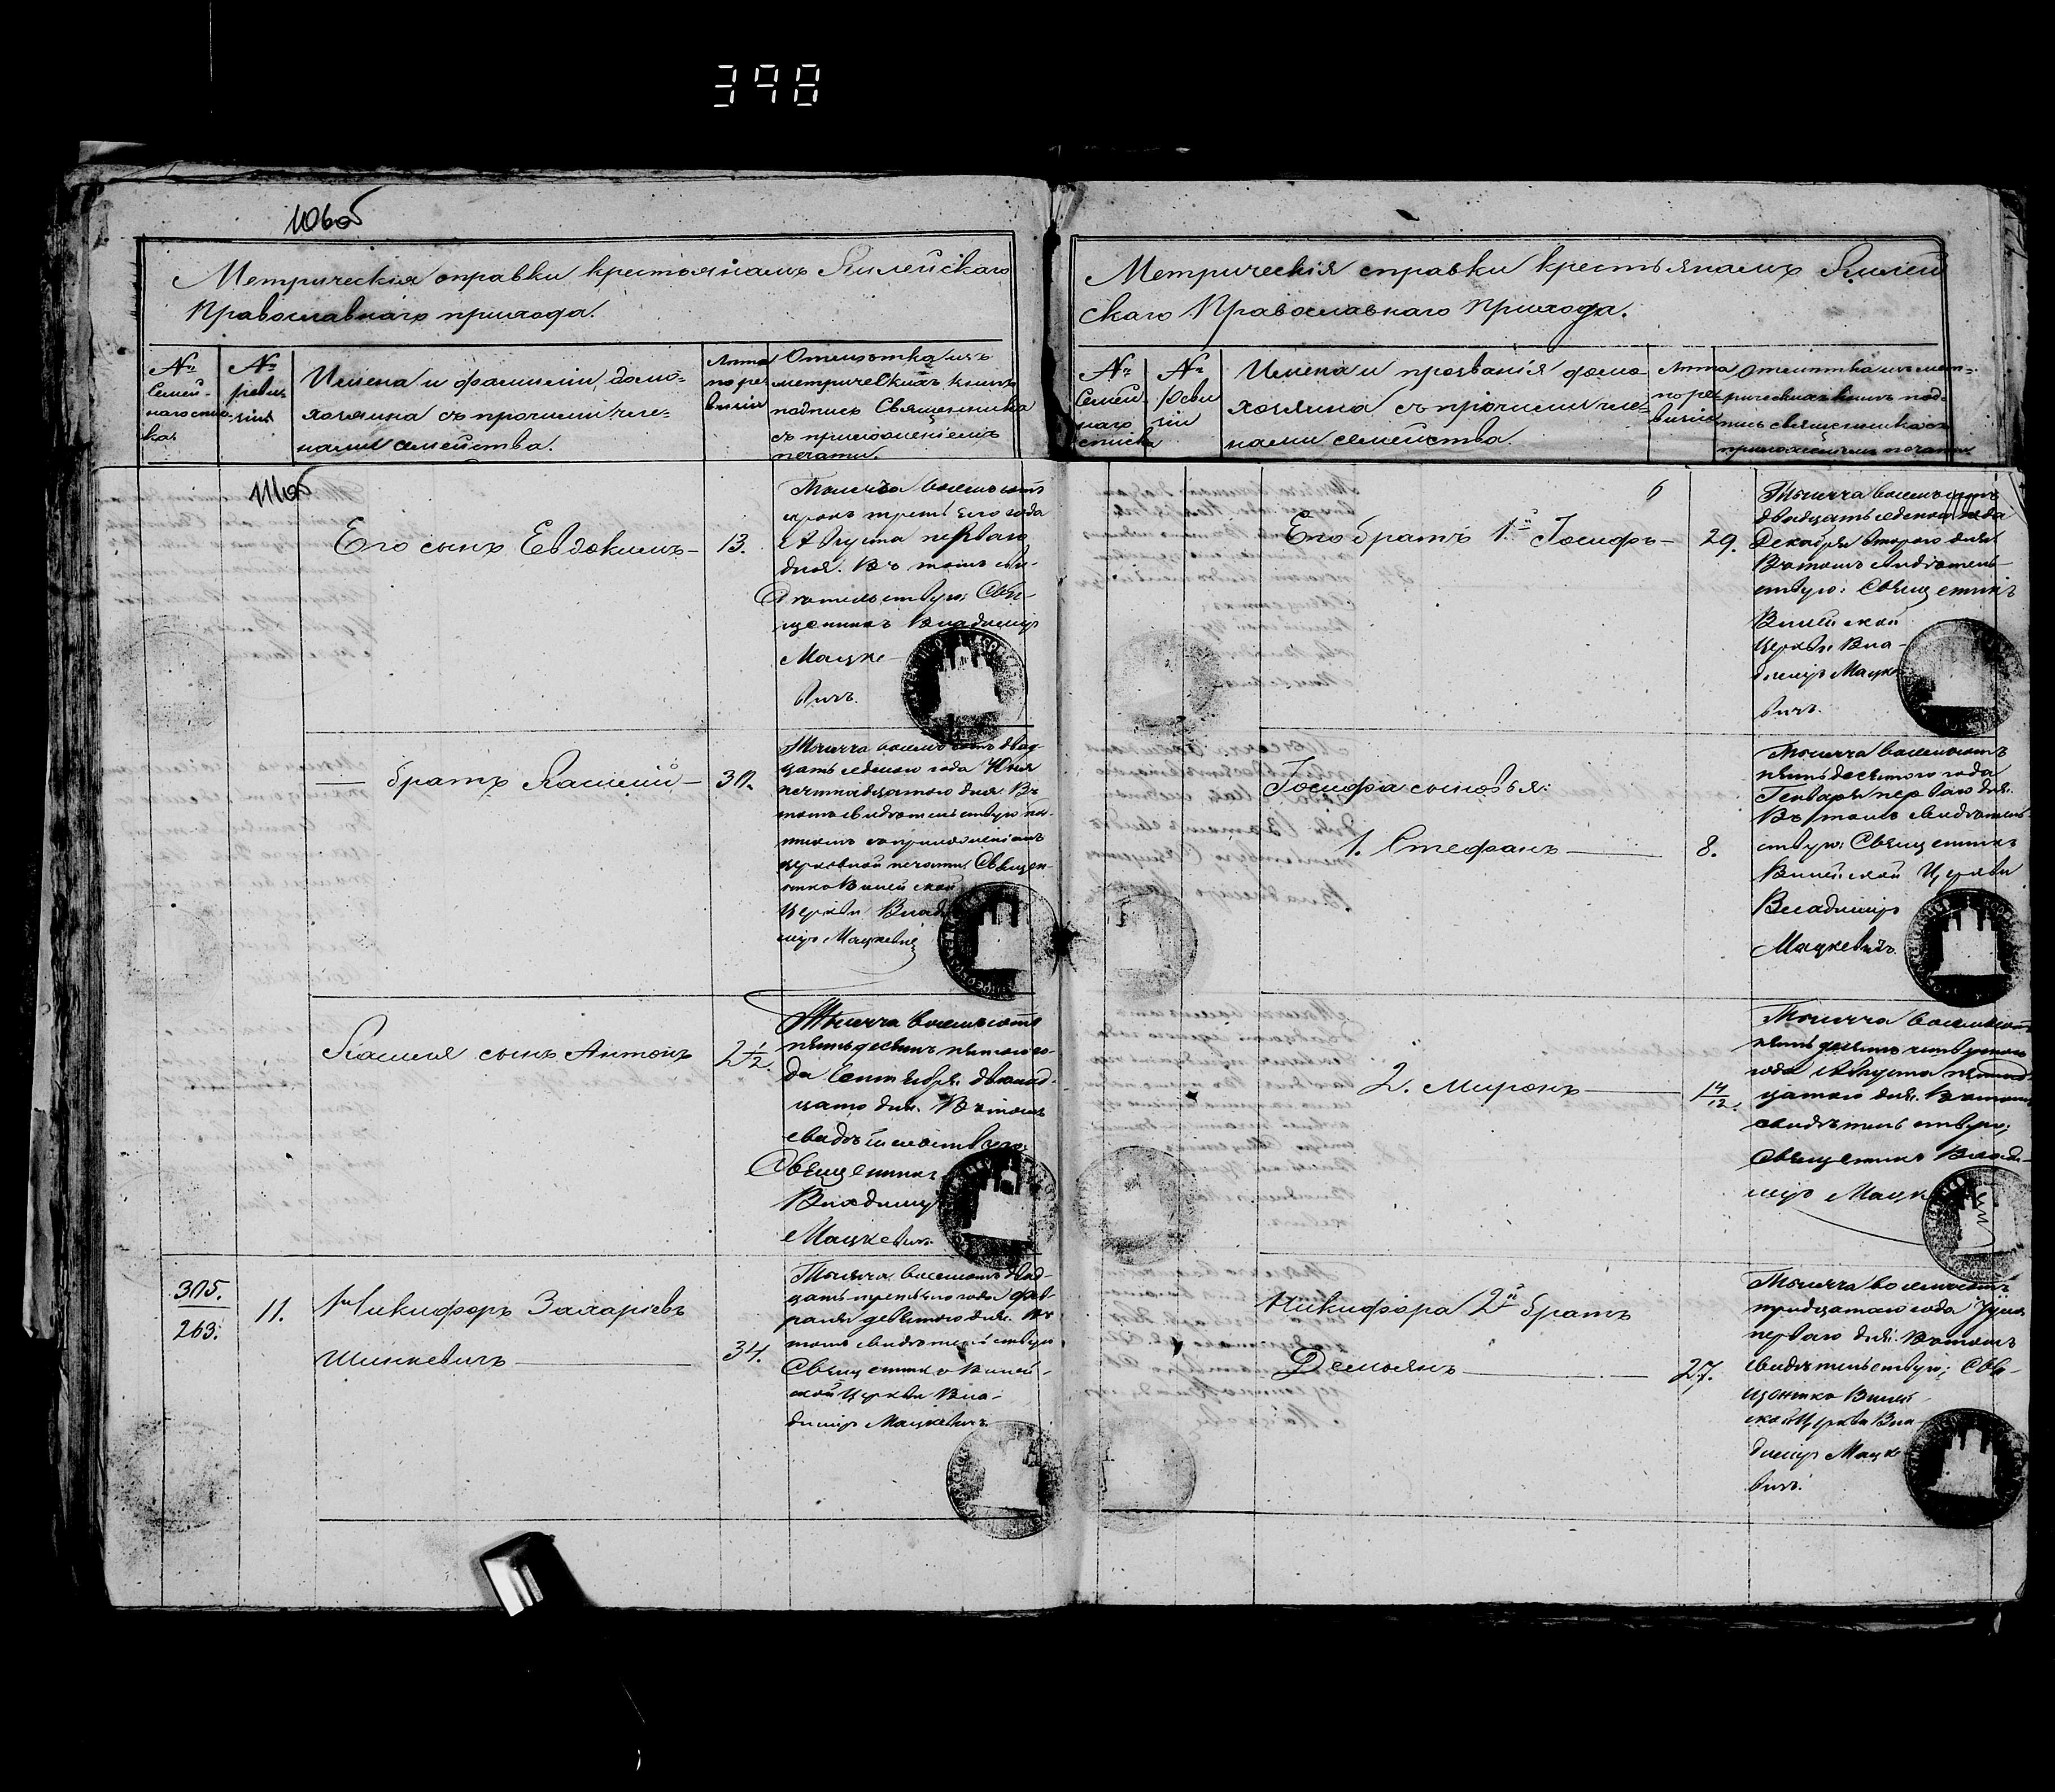 398
110об
Метрическія справки крестьянамъ
Православнаго прихода.
№
Семей-
наго спис-
ка
№
реви-
зіи
Имена и фамиліи домо-
хозяина съ прочими чле-
нами семейства.
Лѣта
по ре-
визіи
Отмѣтка изъ
метрическихъ книгъ
подпись Священника
съ приложеніемъ
печати.
111об
Его сынъ Евдокимъ
13.
Тысяча восемьсотъ
сорокъ третьяго года
Августа перваго
дня. Въ томъ сви-
дѣтельствую: Свя-
щенникъ Владимір
Мацке-
вичъ.
братъ
30.
Тысяча восемьсотъ двад-
цать седьмого года Юня
пятнадцатого дня. Въ
томъ свидѣтельствую
съ приложеніемъ
церковной печати Священ-
никъ Вилейской
Церкви Влади-
міръ Мацкевичъ
сынъ Антонъ
2 1/2.
Тысяча восемьсотъ
пятьдесятъ пятого го-
да Сентября двенад-
цато дня. Въ томъ
свидѣтельствую
Священникъ
Владимір
Мацкевичъ
305.
263.
11.
Никифоръ Захаріевъ
Шинкевичъ
34.
Тысяча восемьсотъ двад-
цать третьяго года Фев-
раля девятого дня. Въ
томъ свидѣтельствую
Священникъ Вилей-
ской Церкви Вла-
диміръ Мацкевичъ
Метрическія справки крестьянамъ
скаго Православнаго Прихода.
№
Семей
наго
списка
№
Реви
зіи
Имена и прозванія домо-
хозяина съ прочими чле-
нами семейства.
Лѣта
по ре-
визіи
Отмѣтка изъ мет-
рическихъ книгъ под-
пись священника съ
приложеніемъ печати
6
Его братъ 1й Іосифъ
29.
Тысяча восемьсотъ
двадцать седьмого года
Декабря второго дня
Въ томъ свидѣтель-
ствую: Священникъ
Вилейской
Церкви Вла-
диміръ Мацке-
вичъ.
Іосифа сыновья:
1. Стефанъ
8.
Тысяча восемьсотъ
пятьдесятого года
Генваря перваго дня.
Въ томъ свидѣтель-
ствую: Священникъ
Вилейской Церкви
Владиміръ
Мацкевичъ.
2. Миронъ
14/12.
Тысяча восемьсотъ
пятьдесятъ четвертого
года Августа пятнад-
цатого дня. Въ томъ
свидѣтельствую;
Священникъ Влади-
міръ Мацк
Никифора 2й братъ
Демьянъ
27.
Тысяча восемьсотъ
тридцатого года
перваго дня. Въ томъ
свидѣтельствую; Свя-
щенникъ Вилей-
ской Церкви Вла-
диміръ Мацке-
вичъ.